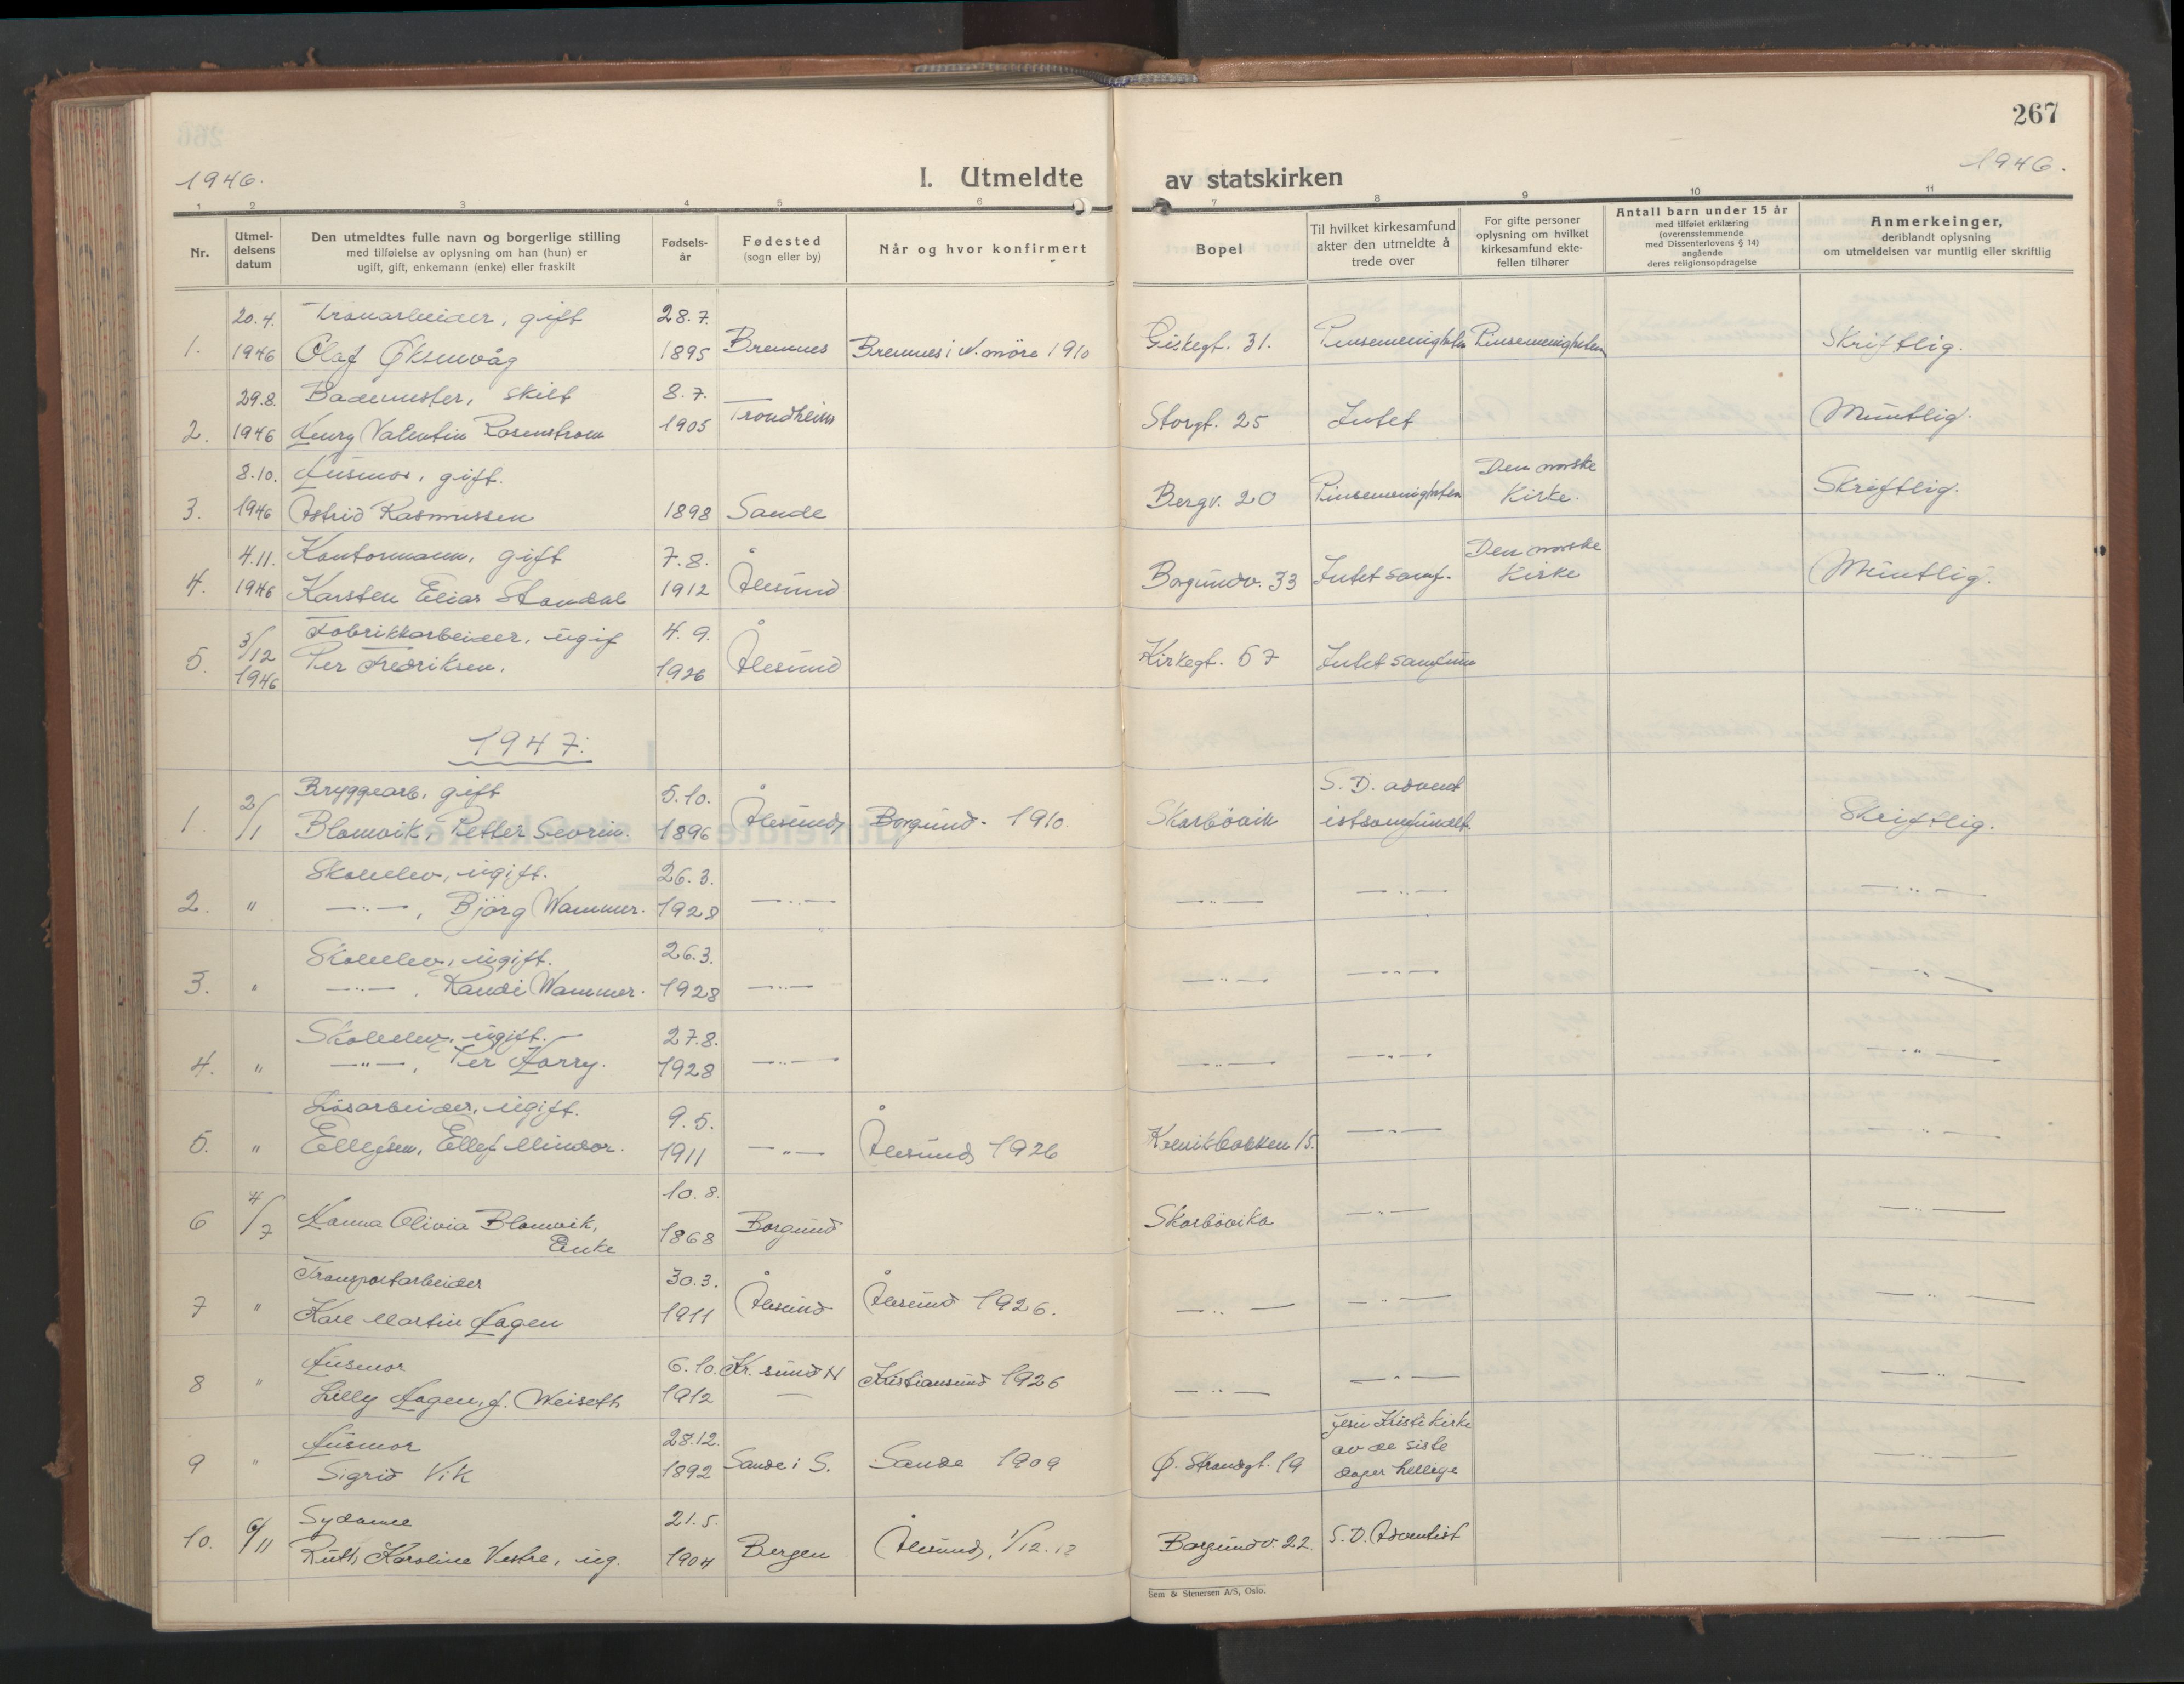 267
1946.
1946.
I. Utmeldte av statskirken
1 2 3 4 5 6 7 8 9 10 11
Nr.
Utmel-
delsens
datum
Den utmeldtes fulle navn og borgerlige stilling
med tilføielse av oplysning om han (hun) er
ugift, gift, enkemann (enke) eller fraskilt
Fødsels-
år
Fødested
(sogn eller by)
Når og hvor konfirmert
Bopel
Til hvilket kirkesamfund
akter den utmeldte å
trede over
For gifte personer
oplysning om hvilket
kirkesamfund ekte-
fellen tilhører
Antall barn under 15 år
med tilføiet erklæring
(overensstemmende
med Dissenterlovens § 14)
angående
deres religionsopdragelse
Anmerkeinger,
deriblandt oplysning
om utmeldelsen var muntlig eller skriftlig
20.4. Tranarbeider, gift 28.7.
1. 1946 Olaf Öksenvåg 1895 Bremnes Bremnes i N.möre 1910 Giskegt. 31. Pinsemenigheten Pinsemenigheten Skriftlig.
29.8. Bademester, skilt 8.7.
2. 1946 Henry Valentin Rosenstrom 1905 Trondheim Storgt. 25 Intet Muntlig.
8.10. Husmor, gift. Den norske
3. 1946 Astrid Rasmussen 1898 Sande Bergv. 20 Pinsemenigheten Kirke. Skriftlig.
4.11. Kontormann, gift 7.8. Den norske
4. 1946 Karsten Elias Standal 1912 Ålesund Borgundv. 33 Intet samf. Kirke Muntlig.
3/12 Fabrikkarbeider, ugif 4.9.
5. 1946 Per Fredriksen. 1926 Ålesund Kirkegt. 57 Intet samfunn
1947.
Bryggearb. gift 5.10. S.D. advent
1. 2/1 Blomvik, Petter Sevrin. 1896 Ålesund Borgund. 1910. Skarbövik istsamfundet Skriftlig.
Skoleelev, ugift. 26.3.
2. " —"—, Björg Wammer. 1928 —"— —"— —"— —"—
Skoleelev, ugift. 26.3.
3. " —"—, Randi Wammer. 1928 —"— —"— —"— —"—
Skoleelev, ugift. 27.8.
4. " —"—, Per Harry. 1928 —"— —"— —"— —"—
Løsarbeider, ugift. 9.5.
5. " Ellefsen, Ellef Mindor. 1911 —"— Ålesund 1926 15. —"— —"—
10.8.
6 4/7 Hanna Olivia Blomvik, 1868 Borgund Skarbövika —"— —"—
Enke
Transportarbeider 30.3.
7 " Kare Martin Hagen 1911 Ålesund Ålesund 1926. —"— —"— —"—
Husmor 6.10. Kr.sund N
8 " Lilly Hagen, f. Weiseth 1912 — Kristiansund 1926 —"— —"— —"—
Husmor 28.12. Jesu Kristi Kirke
av de siste
9 " Sigrid Vik 1892 Sande i S. Sande 1909 Ø. Strandgt. 19 dager hellige —"—
Sydame 21.5.
10. 6/11 Ruth Karoline Vestre, ug. 1904 Bergen Ålesund, 1/12.18 Borgundv. 22. S.D. Adventist —"—
Sem & Stenersen A/S, Oslo.